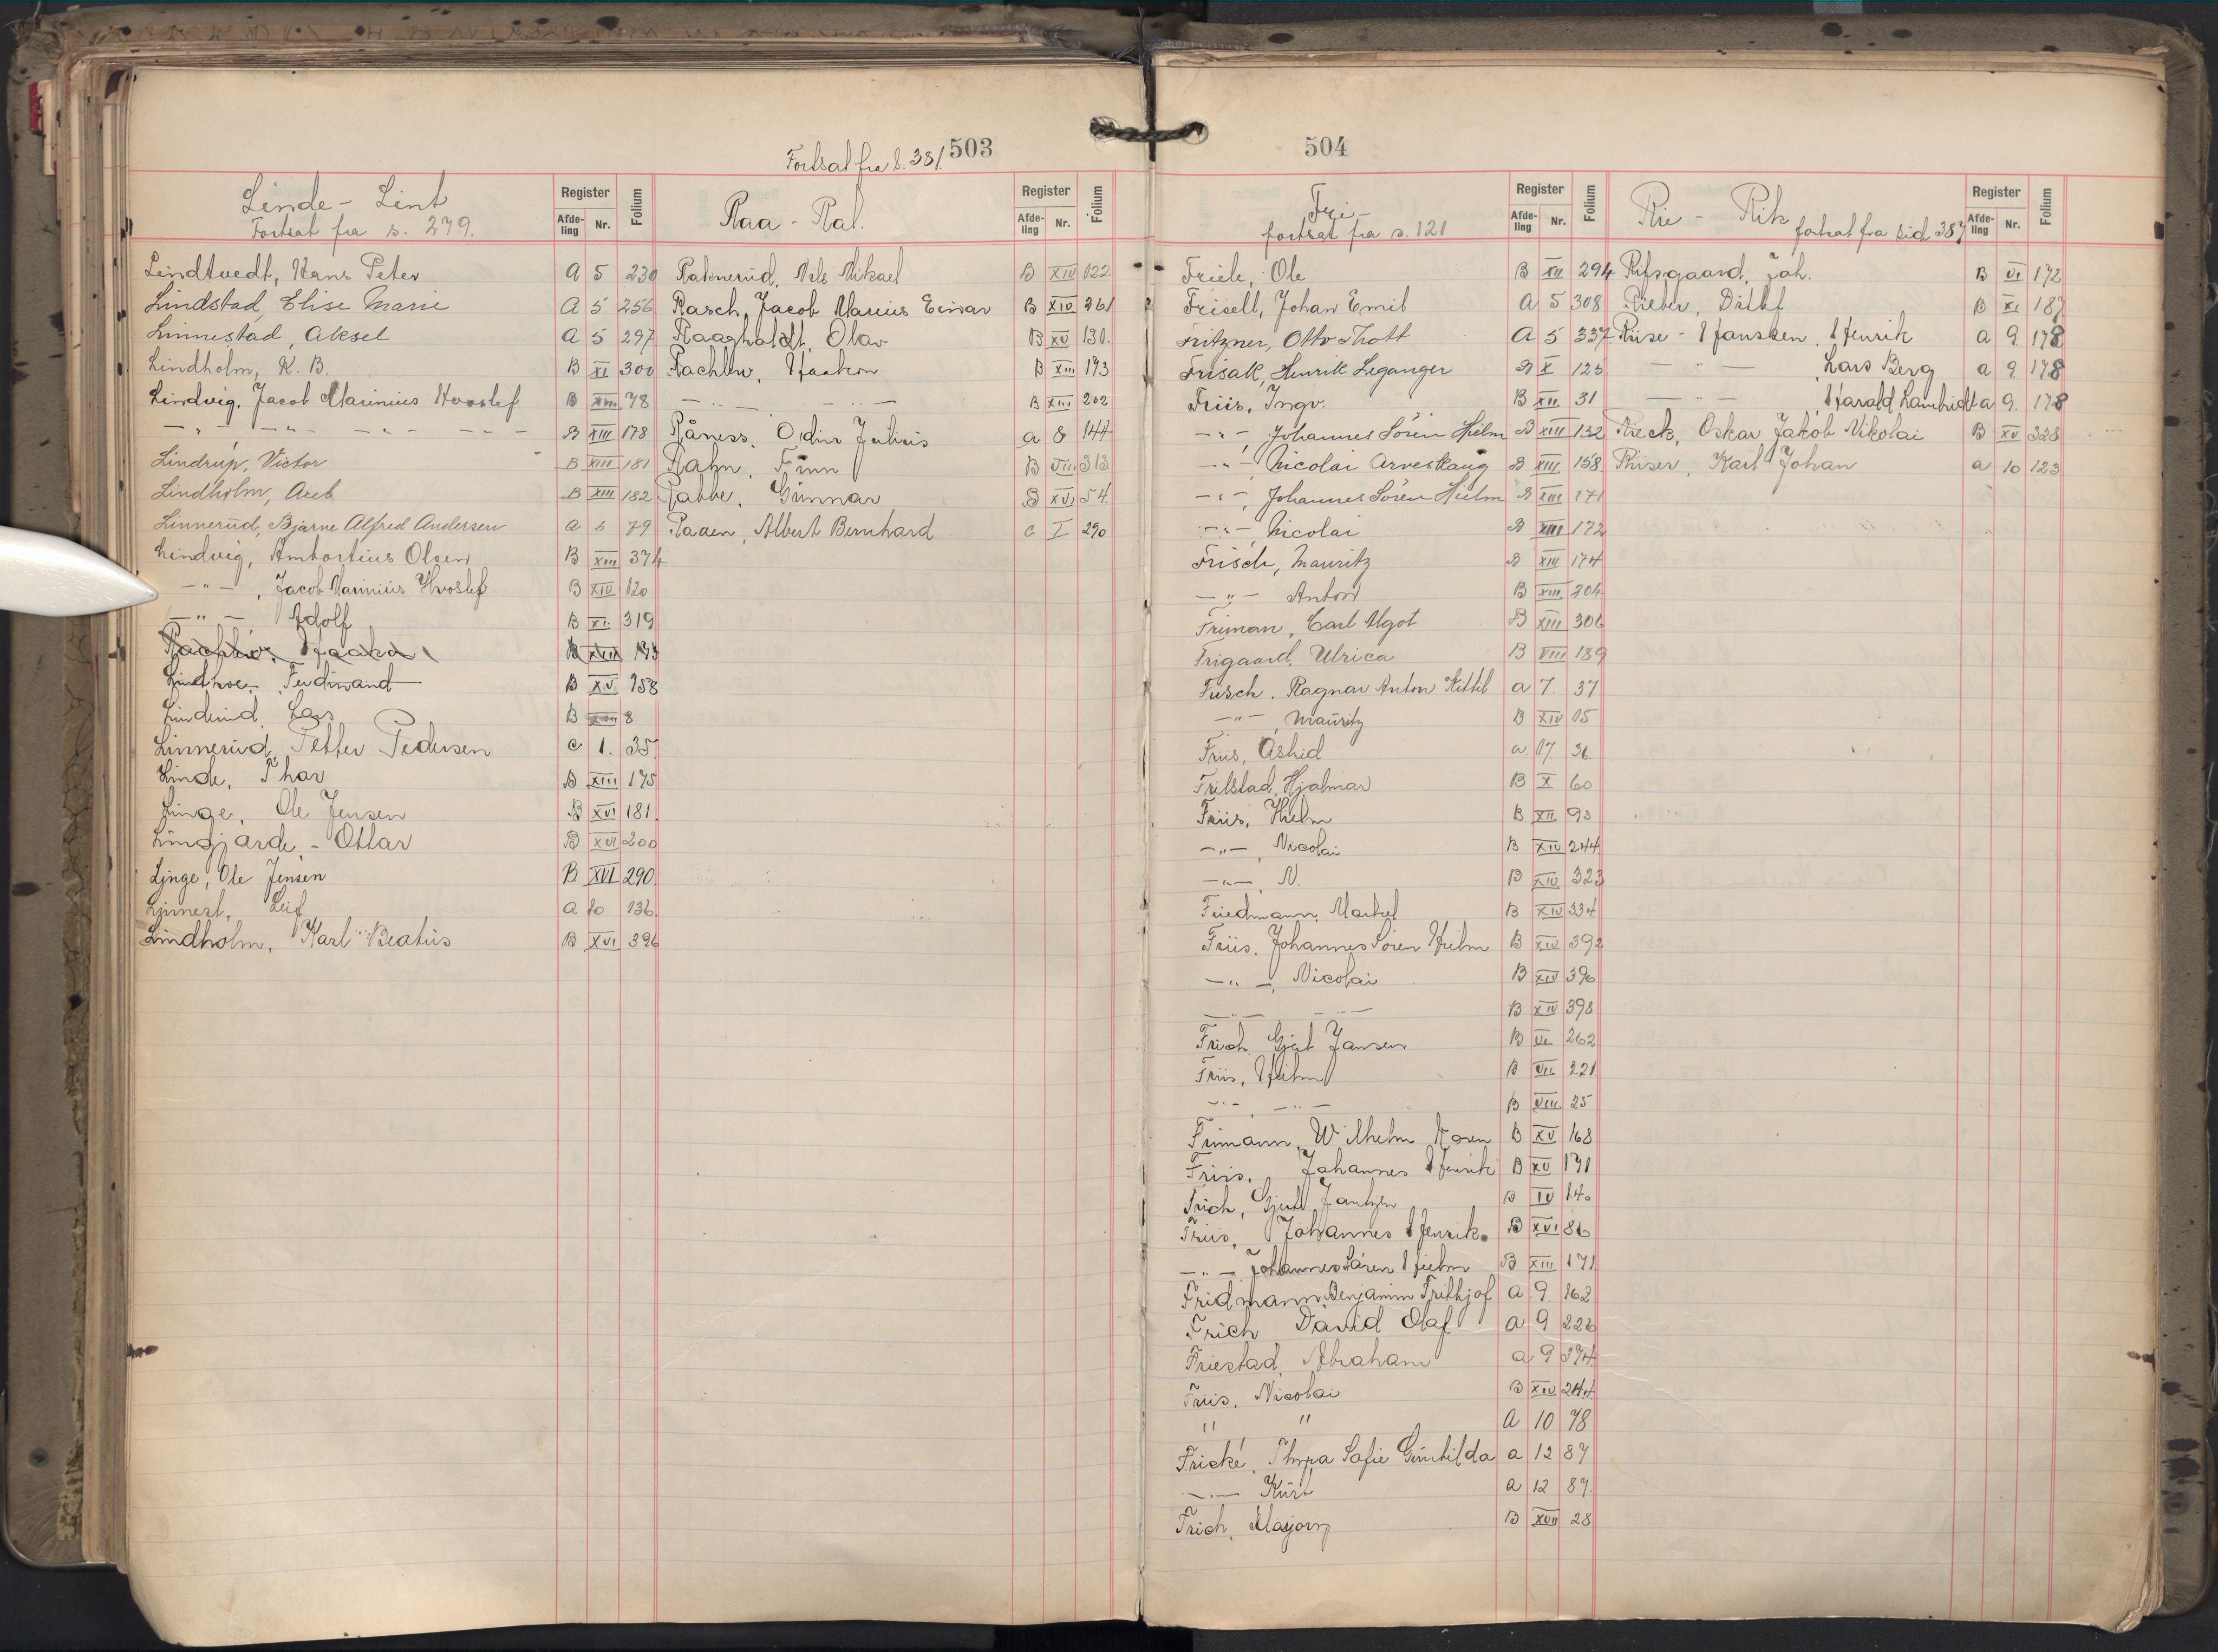 503
Fortsat fra s. 381.
Linde - Lint
Fortsat fra s. 279.
Register
Afde-ling Nr. Folium
Lindtvedt, Hans Peter A 5 230
Lindstad, Elise Marie A 5 256
Linnestad, Aksel A 5 297
Lindholm, K. B. B XI 300
Lindvig, Jacob Marinius Hvoslef B XIII 78
— " — — " — — " — — " — B XIII 178
Lindrup, Victor B XIII 181
Lindholm, Areb B XIII 182
Linnerud, Bjarne Alfred Andersen a 6 79
Lindvig, Ambortius Olsen B XIII 374
— " — , Jacob Marinius Hvoslef B XIV 120
— " — Adolf B XI 319
Rachlew, Haakon B XIII 193
Lindhoe, Ferdinand B XV 158
Linderud, Lars B 8
Linnerud, Petter Pedersen C 1. 35
Linde, Thor B XIII 175
Linge, Ole Jensen B XVI 181
Lingjærde - Ottar B XVI 200
Linge, Ole Jensen B XVI 290
Linnert, Leif a 10 136
Lindholm, Karl Beatus B XVI 396
Raa - Ral.
Register
Afde-ling Nr. Folium
Raknerud, Nils Mikael B XIV 122
Rasch, Jacob Marius Einar B XIV 261
Raagholdt, Olav B XV 130.
Rachlew, Haakon B XIII 193
— " — — " — B XIII 202
Råness, Odin Julius a 8 144
Rahn, Finn B VIII 313
Rabbe, Gunnar B XVI 54
Raaen, Albert Bernhard C I 290
504
Fri -
fortsat fra s. 121
Register
Afde-ling Nr. Folium
Friele, Ole B XII 294
Frisell, Johan Emil A 5 308
Fritzner, Otto Thott A 5 337
Frisak, Henrik Leganger B X 125
Friis, Ingv. B XII 31
— " — , Johannes Sören Hielm B XIII 132
— " — Nicolai Arveskaug B XIII 158
— " — , Johannes Sören Hielm B XIII 171
— " — , Nicolai B XIII 172
Frisch, Mauritz B XIII 174
— " — Anton B XIII 204
Friman, Carl Ugot B XIII 306
Frigaard, Ulrica B VIII 189
Frisch, Ragnar Anton Kittil a 7. 37
— " — , Mauritz B XIV 15
Friis, Åshid a 7. 36
Frilstad, Hjalmar B X 60
Friis, Hielm B XII 93
— " — , Nicolai B XIV 244
— " — , N. B XIV 323
Friedmann, Markel B XIV 334
Friis, Johannes Sören Hielm B XIV 392
— " — , Nicolai B XIV 396
— " — — " — B XIV 398
Frich, Gjert Jansen B VI 262
Friis, Hielm B VII 221
— " — , — " — B VIII 25
Frimann, Wilhelm Koren B XV 168
Friis, Johannes Henrik B XV 191
Frich, Gjert Jantzen B IV 140
Friis, Johannes Henrik B XVI 86
— " — Johannes Sören Hielm B XIII 171
Fridmann, Benjamin Frithjof a 9. 162
Frich David Olaf a 9 226
Friestad, Abraham a 9 394
Friis, Nicolai B XIV 244
" " A 10 78
Fricke, Thora Sofie Gunhilda a 12 87
— " — Kurt a 12 87
Frich, Marjory B XVII 28
Rie - Rik fortsat fra sid 387
Register
Afde-ling Nr. Folium
Rifsgaard, Joh. B VI 172
Rieber, Ditlef B XI 187
Riise - Hanssen, Henrik a 9 178
— " — Lars Berg a 9 178
— " — , Harald Lambricht a 9. 178
Rieck, Oskar Jakob Nikolai B XV 328
Riiser, Karl Johan a 10 123